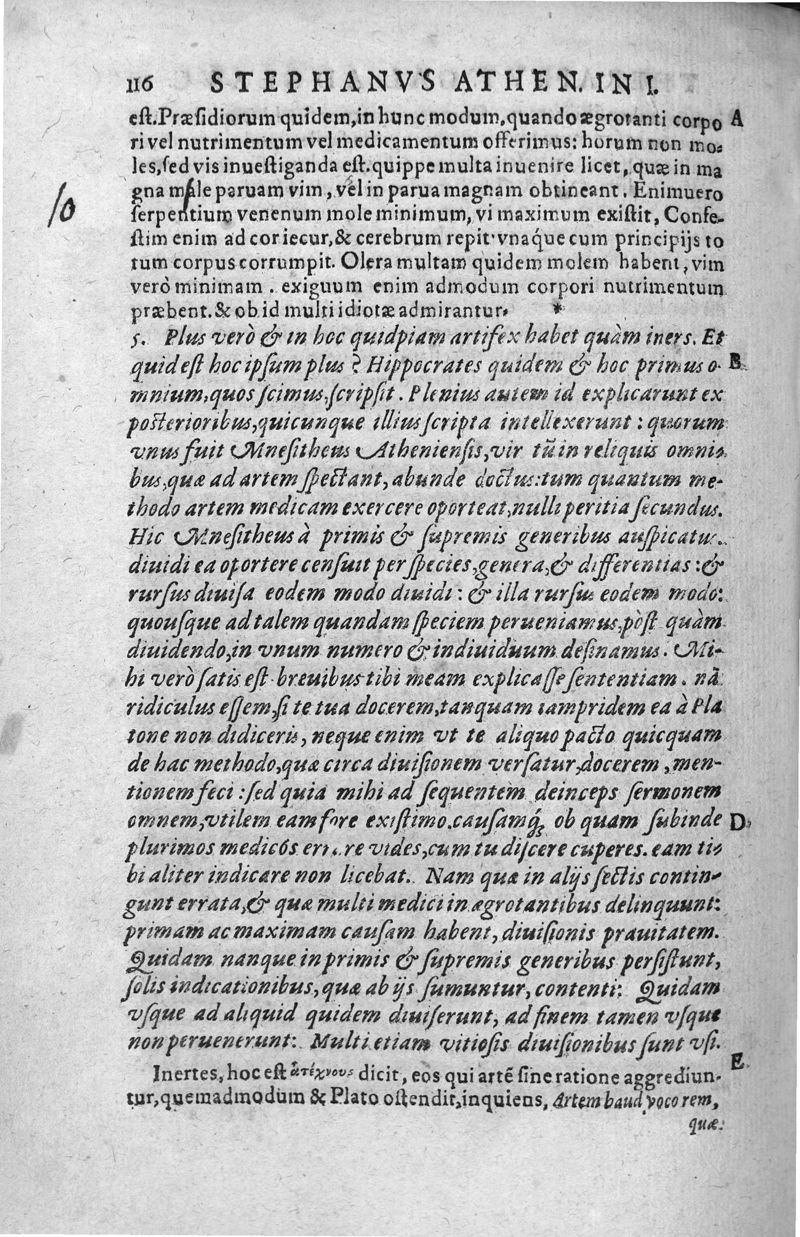 116 STEPHANVS ATHEN. IN I.
est. Præsidiorum quidem, in hunc modum, quando ægrotanti corpo A
ri vel nutrimentum vel medicamentum offerimus: horum non mo-
les, sed vis inuestiganda est. quippe multa inuenire licet, quæ in ma
gna mole paruam vim, vel in parua magnam obtineant. Enimuero
10
serpentium venenum mole minimum, vi maximum existit, Confe-
stim enim ad cor iecur, & cerebrum repit vnaq́ue cum principijs to
tum corpus corrumpit. Olera multam quidem molem habent, vim
verò minimam. exiguum enim admodum corpori nutrimentum
præbent. & ob id multi idiotæ admirantur. *
5. Plus verò & in hoc quidpiam artifex habet quàm iners. Et
quid est hoc ipsum plus? Hippocrates quidem & hoc primus o- B
mnium, quos scimus, scripsit. Plenius autem id explicarunt ex
posterioribus, quicunque illius scripta intellexerunt: quorum
vnus fuit Mnesitheus Atheniensis, vir tū in reliquis omni-
bus, quæ ad artem spectant, abunde doctus: tum quantum me-
thodo artem medicam exercere oporteat, nulli peritia secundus.
Hic Mnesitheus à primis & supremis generibus auspicatur.
diuidi ea oportere censuit per species, genera, & differentias: &
rursus diuisa eodem modo diuidi: & illa rursus eodem modo:
quousque ad talem quandam speciem perueniamus, pòst quàm
diuidendo, in vnum numero & indiuiduum desinamus. Mi-
hi verò satis est breuibus tibi meam explicasse sententiam. nā
ridiculus essem, si te tua docerem, tanquam iampridem ea à Pla
tone non didiceris, neque enim vt te aliquo pacto quicquam
de hac methodo, quæ circa diuisionem versatur, docerem, men-
tionem feci: sed quia mihi ad sequentem deinceps sermonem
omnem, vtilem eam fore existimo. causamq́; ob quam subinde D
plurimos medicós errare vides, cum tu discere cuperes. eam ti-
bi aliter indicare non licebat. Nam quæ in alijs sectis contin-
gunt errata, & quæ multi medici in ægrotantibus delinquunt:
primam ac maximam causam habent, diuisionis prauitatem.
Quidam nanque in primis & supremis generibus persistunt,
solis indicationibus, quæ ab ijs sumuntur, contenti: Quidam
vsque ad aliquid quidem diuiserunt, ad finem tamen vsque
non peruenerunt: Multi etiam vitiosis diuisionibus sunt vsi.
Inertes, hoc est ἀτέχνους dicit, eos qui artē sine ratione aggrediun- E
tur, quemadmodum & Plato ostendit, inquiens, Artem haud voco rem,
quæ